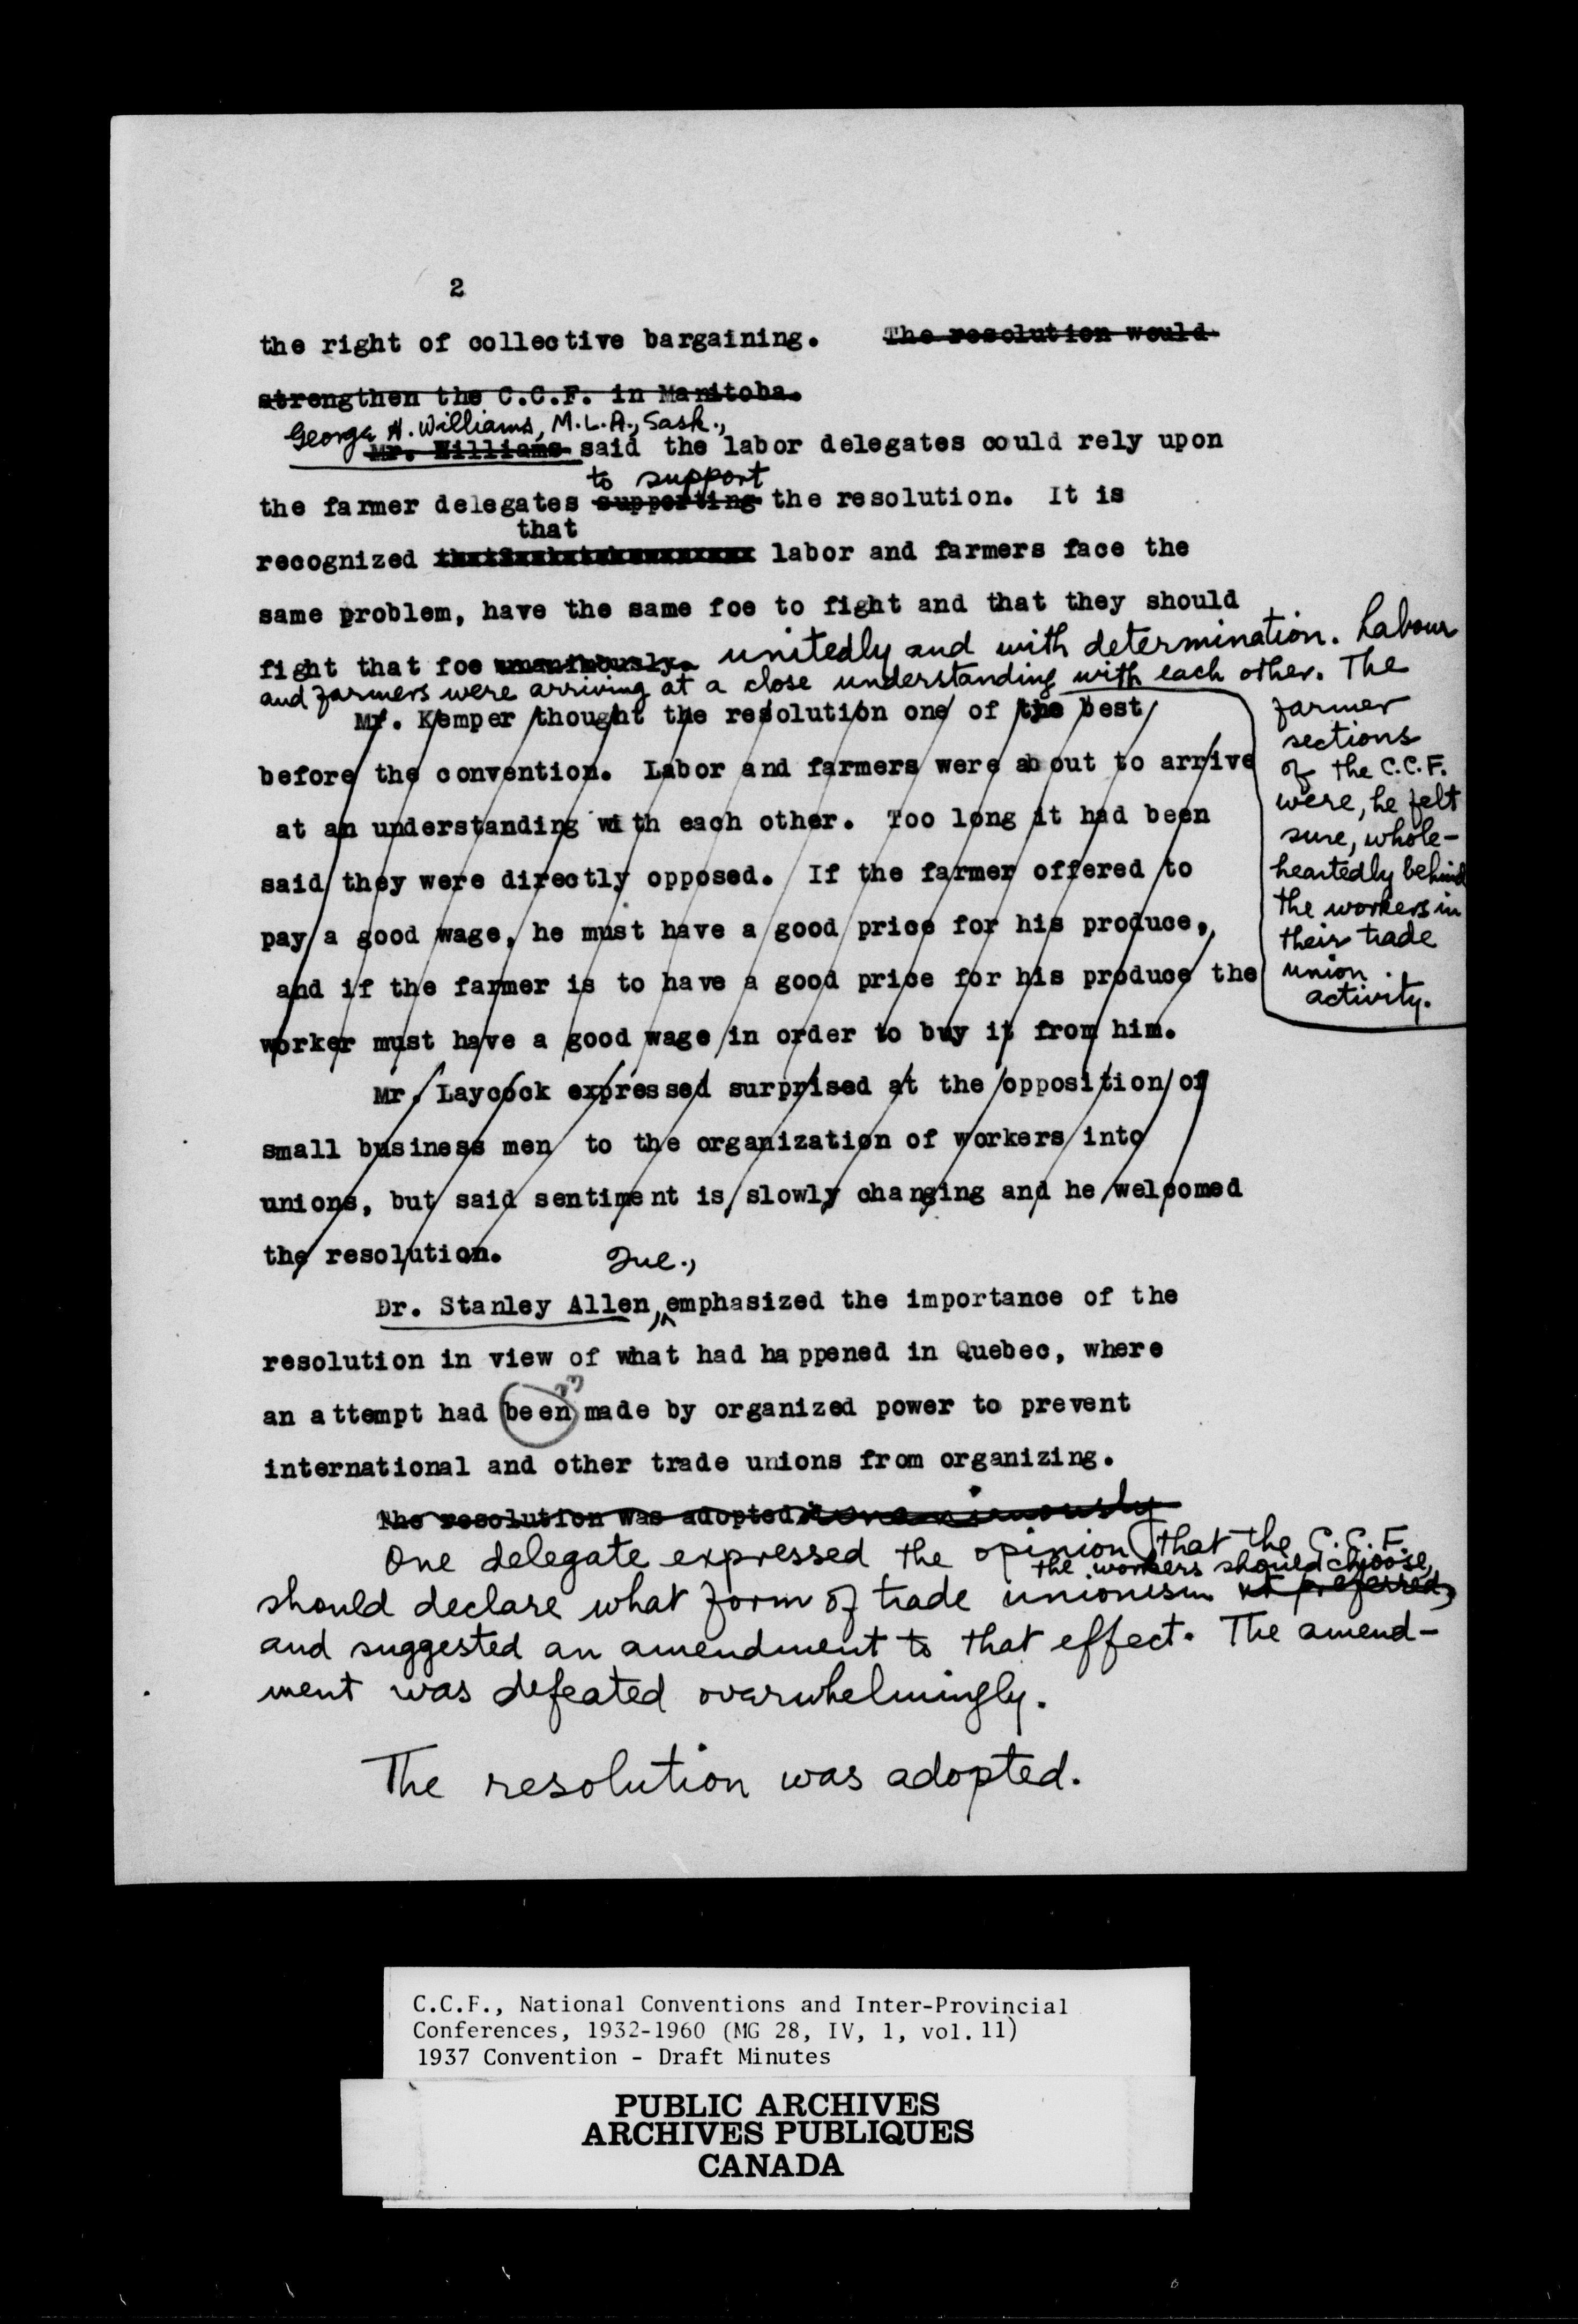 2
the right of collective bargaining. The resolution would
strengthen the C.C.F. in Manitoba.
George H. Williams, M.L.A., Sask.,
Mr. Williams said the labor delegates could rely upon
to support
the farmer delegates supporting the resolution. It is
that
recognized labor and farmers face the
same problem, have the same foe to fight and that they should
fight that foe unanimously. unitedly and with determination. Labour
and farmers were arriving at a close understanding with each other. The
farmer
sections
of the C.C.F.
were, he felt
sure, whole-
heartedly behind
the workers in
their trade
union
activity.
Mr. Kemper thought the resolution one of the best
before the convention. Labor and farmers were about to arrive
at an understanding with each other. Too long it had been
said they were directly opposed. If the farmer offered to
pay a good wage, he must have a good price for his produce,
and if the farmer is to have a good price for his produce the
worker must have a good wage in order to buy it from him.
Mr. Laycock expressed surprised at the opposition of
small business men to the organization of workers into
unions, but said sentiment is slowly changing and he welcomed
the resolution.
Que.,
Dr. Stanley Allen, emphasized the importance of the
resolution in view of what had happened in Quebec, where
an attempt had been made by organized power to prevent
international and other trade unions from organizing.
The resolution was adopted unanimously
One delegate expressed the opinion that the C.C.F.
the workers should choose,
should declare what form of trade unionism it preferred,
and suggested an amendment to that effect. The amend-
ment was defeated overwhelmingly.
The resolution was adopted.
C.C.F., National Conventions and Inter-Provincial
Conferences, 1932-1960 (MG 28, IV, 1, vol. 11)
1937 Convention - Draft Minutes
PUBLIC ARCHIVES
ARCHIVES PUBLIQUES
CANADA